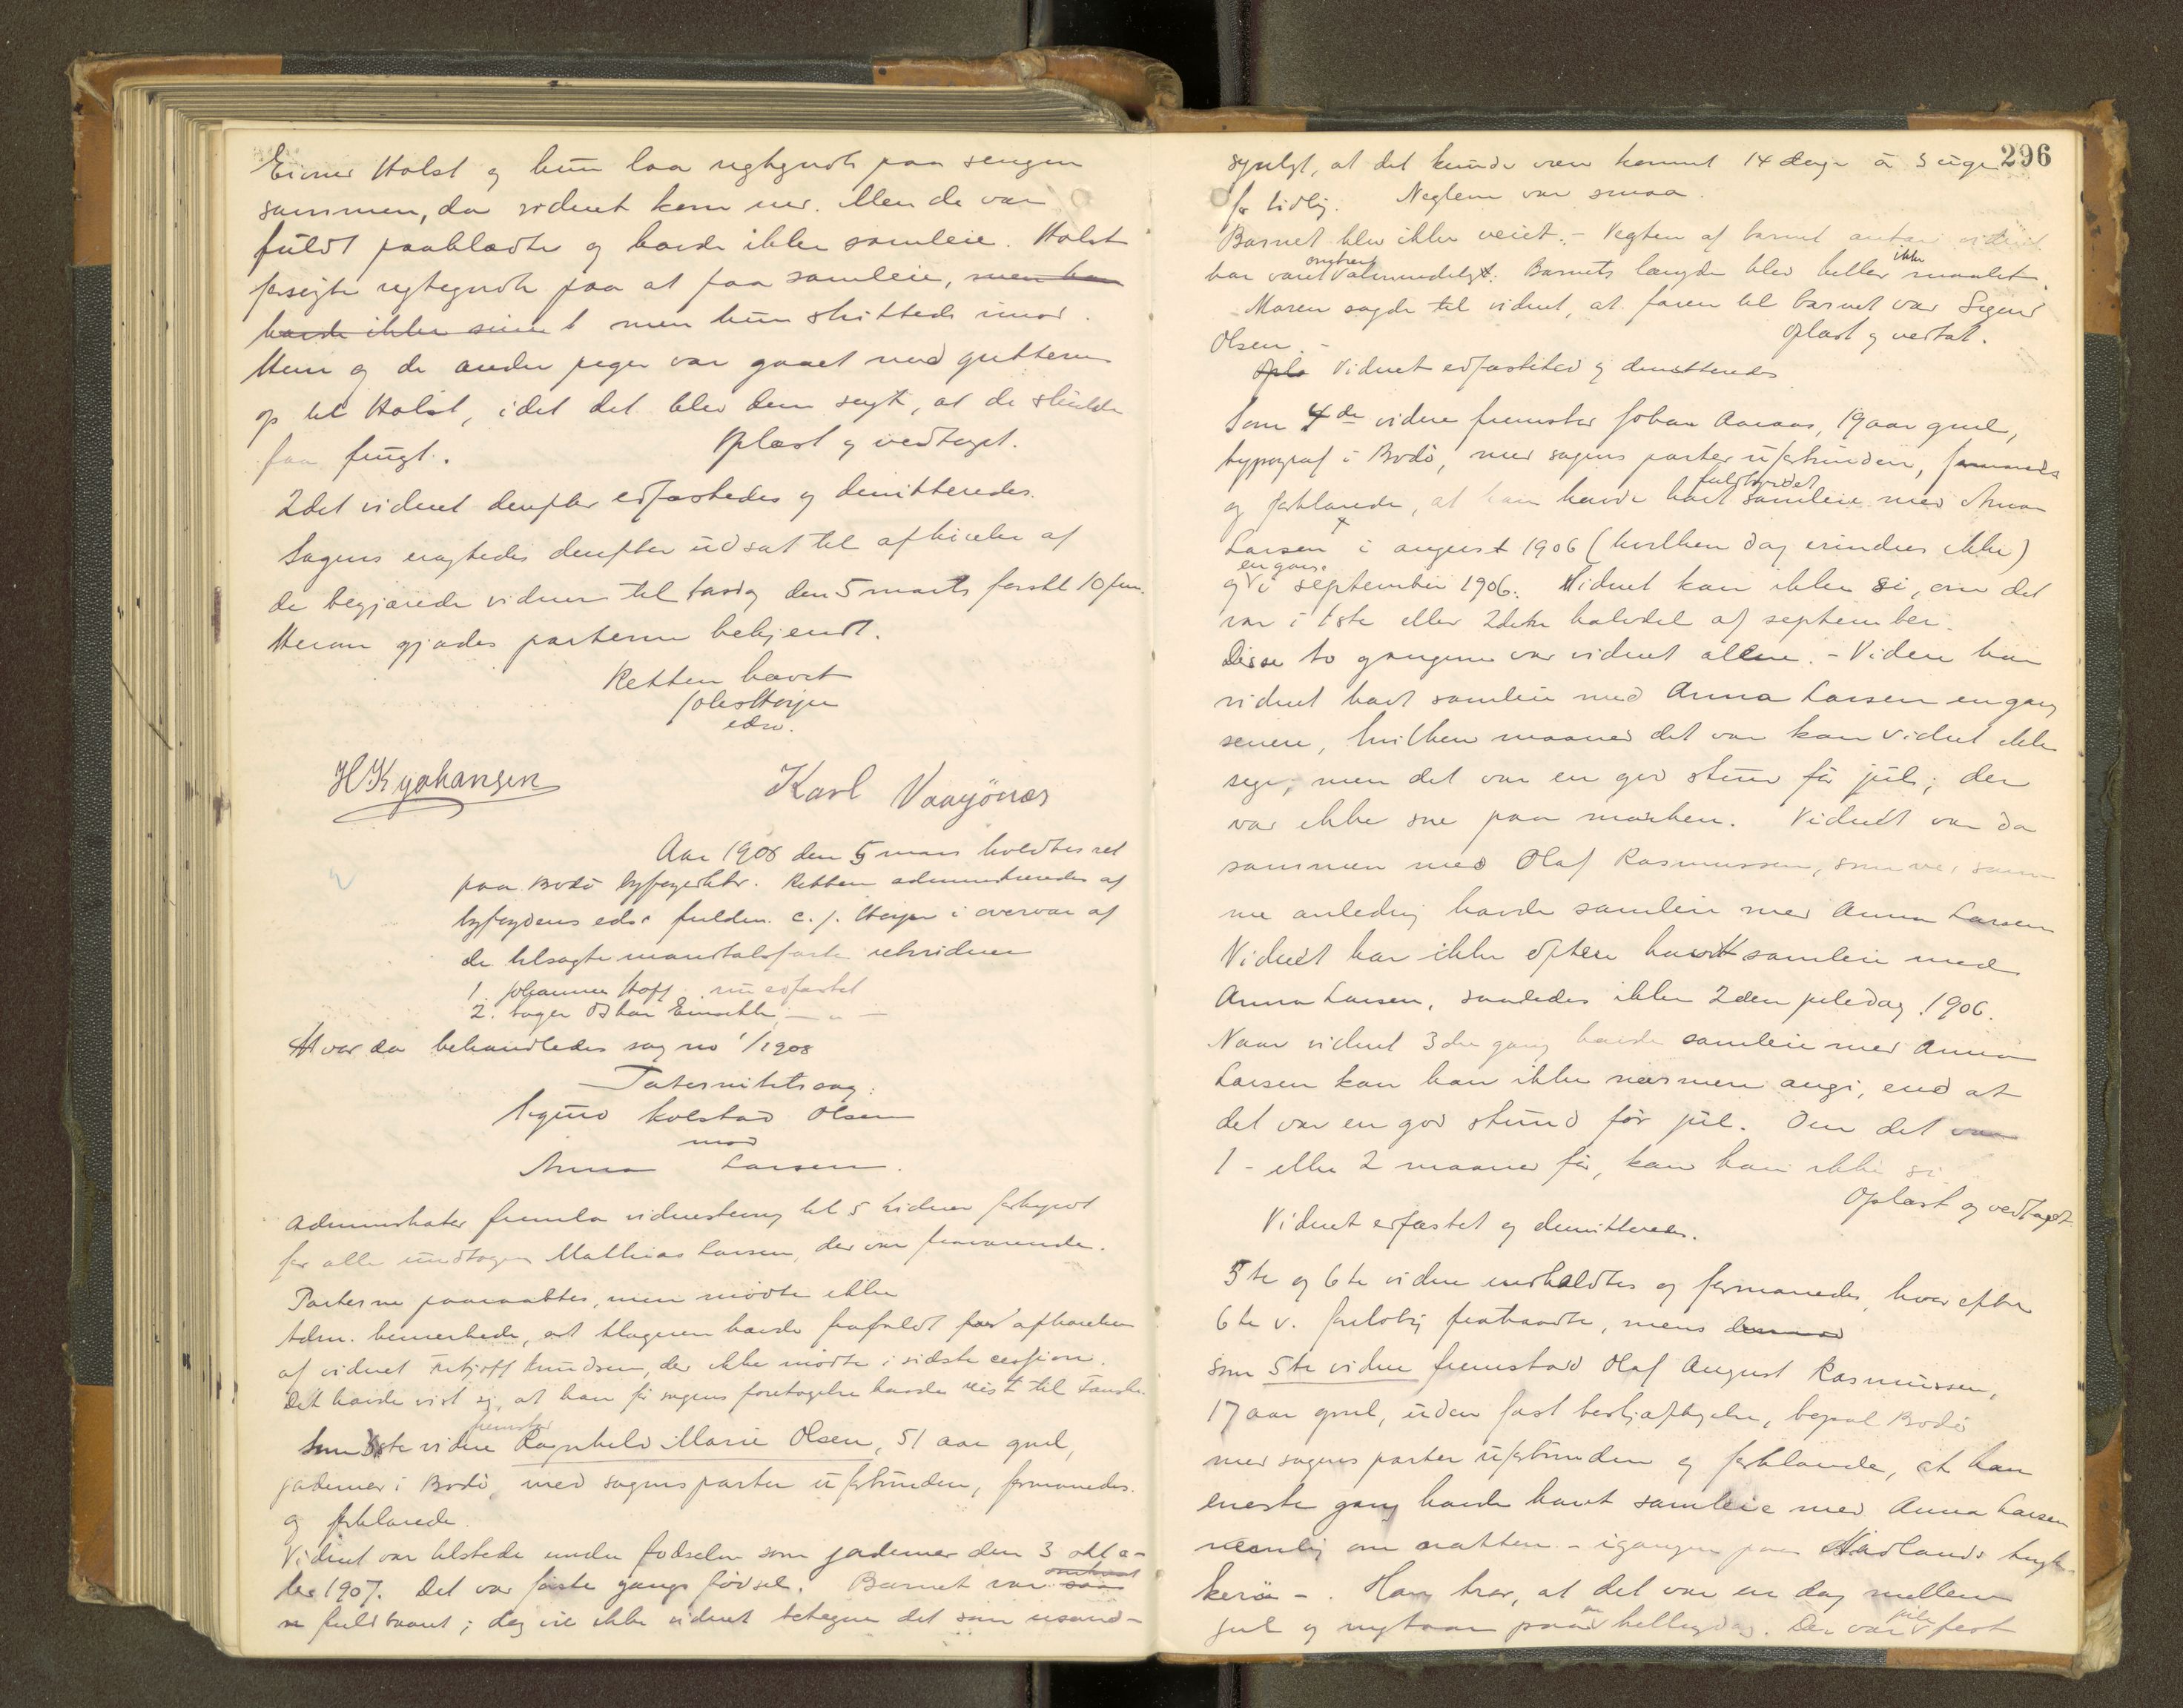 Einar Holst og hun laa rigtignok paa sengen
sammen, da vidnet kom ner. Men de var
fuldt paaklædte og havde ikke samleie. Holst
forsøgte rigtignok paa at faa samleie, men han
havde ikke men hun strittede imod.
Hun og de andre piger var gaaet med gutterne
op til Holst, idet det blev dem sagt, at de skulde
faa frugt. Oplæst og vedtaget.
2det vidnet derefter edfæstedes og demitteredes.
Sagens eragtedes derefter udsat til afhørelse af
de begjærede vidner til torsdag den 5 marts førstk 10 fm.
Herom gjordes parterne bekjendt.
Retten hævet
edsv.
H K Johansen Karl Vaagønes
Aar 1908 den 5 mars holdtes ret
paa Bodø byfogedktr. Retten administreredes af
byfogdens eds. fuldm. C. J. i overvær af
de tilsagte mandtalsførte retsvidner
1. Johannes Hoff nu edfæstet
2. Oskar — " —
Hvor da behandledes sag no 1/1908
Paternitetssag:
Sigurd Kolstad Olsen
mod
Anna Larsen.
Administrator fremla vidnestevning til 5 vidner forkyndt
for alle undtagen Mathias Larsen, der var fraværende.
Parterne paaraabtes, men mødte ikke
Adm. bemerkede, at klageren havde frafaldt afhørelsen
af vidnet Fritjoff Knudsen, der ikke mødte i sidste session.
Det havde vist sig, at han før sagens foretagelse havde reist til
fremstod
Som 3die vidne Ragnhild Marie Olsen, 51 aar gml,
jordemor i Bodø, med sagens parter uforbunden, formanedes
og forklarede
Vidnet var tilstede under fødselen som jordemor den 3 okto-
ber 1907. Det var første gangs fødsel. Barnet var
fuldbaaret; dog vil ikke vidnet betegne det som usand-
296
synligt, at det kunde være kommet 14 dage à 3 uger
for tidlig. Neglene var smaa.
Barnet blev ikke veiet. – Vegten af barnet antar vidnet
omtrent ikke
har været almindeligt. Barnets længde blev heller maalt.
Maren sagde til vidnet, at faren til barnet var Sigurd
Olsen. – Oplæst og vedtat.
Vidnet edfæstet og demitteredes
Som 4de vidne fremstod Johan Aanaas, 19 aar gml,
typograf i Bodø, med sagens parter uforbunden, formanedes
fuldbyrdet
og forklarede, at han havde havt samleie med Anna
Larsen i august 1906 (hvilken dag erindres ikke)
en gang
og i september 1906. Vidnet kan ikke si, om det
var i 1ste eller 2den halvdel af september.
Disse to gangene var vidnet allene. – Videre har
vidnet havt samleie med Anna Larsen en gang
senere, hvilken maaned det var kan vidnet ikke
sige, men det var en god stund før jul; der
var ikke sne paa marken. Vidnet var da
sammen med Olaf Rasmussen, som ved sam-
me anledning havde samleie med Anna Larsen
Vidnet har ikke oftere havt samleie med
Anna Larsen, saaledes ikke 2den juledag 1906.
Naar vidnet 3die gang havde samleie med Anna
Larsen kan han ikke nærmere angi, end at
det var en god stund før jul. Om det var
1 - eller 2 maaneder før, kan han ikke si
Oplæst og vedtaget
Vidnet edfæstet og demitteredes.
5te og 6te vidne indkaldtes og formanedes, hvorefter
6te v. foreløbig fratraadte, mens
som 5te vidne fremstod Olaf August Rasmussen,
17 aar gml, uden fast beskjæftigelse, bopæl Bodø
med sagens parter uforbunden og forklarede, at han
eneste gang havde havt samleie med Anna Larsen
nemlig om natten – i gangen paa Nordlands trykke-
keri –. Han tror, at det var en dag mellem
en jule
jul og nytaar paa helligdag. Der var fest